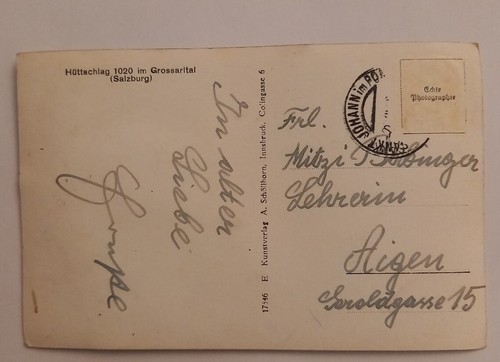 Hüttschlag 1020 im Grossarltal
(Salzburg)
In alter
Liebe
17546 H Kunstverlag A. Schöllhorn, Innsbruck, Colingasse 6
SANKT JOHANN im PON
Echte
Photographie
Frl.
Mitzi
Lehrerin
Aigen
Geroldgasse 15